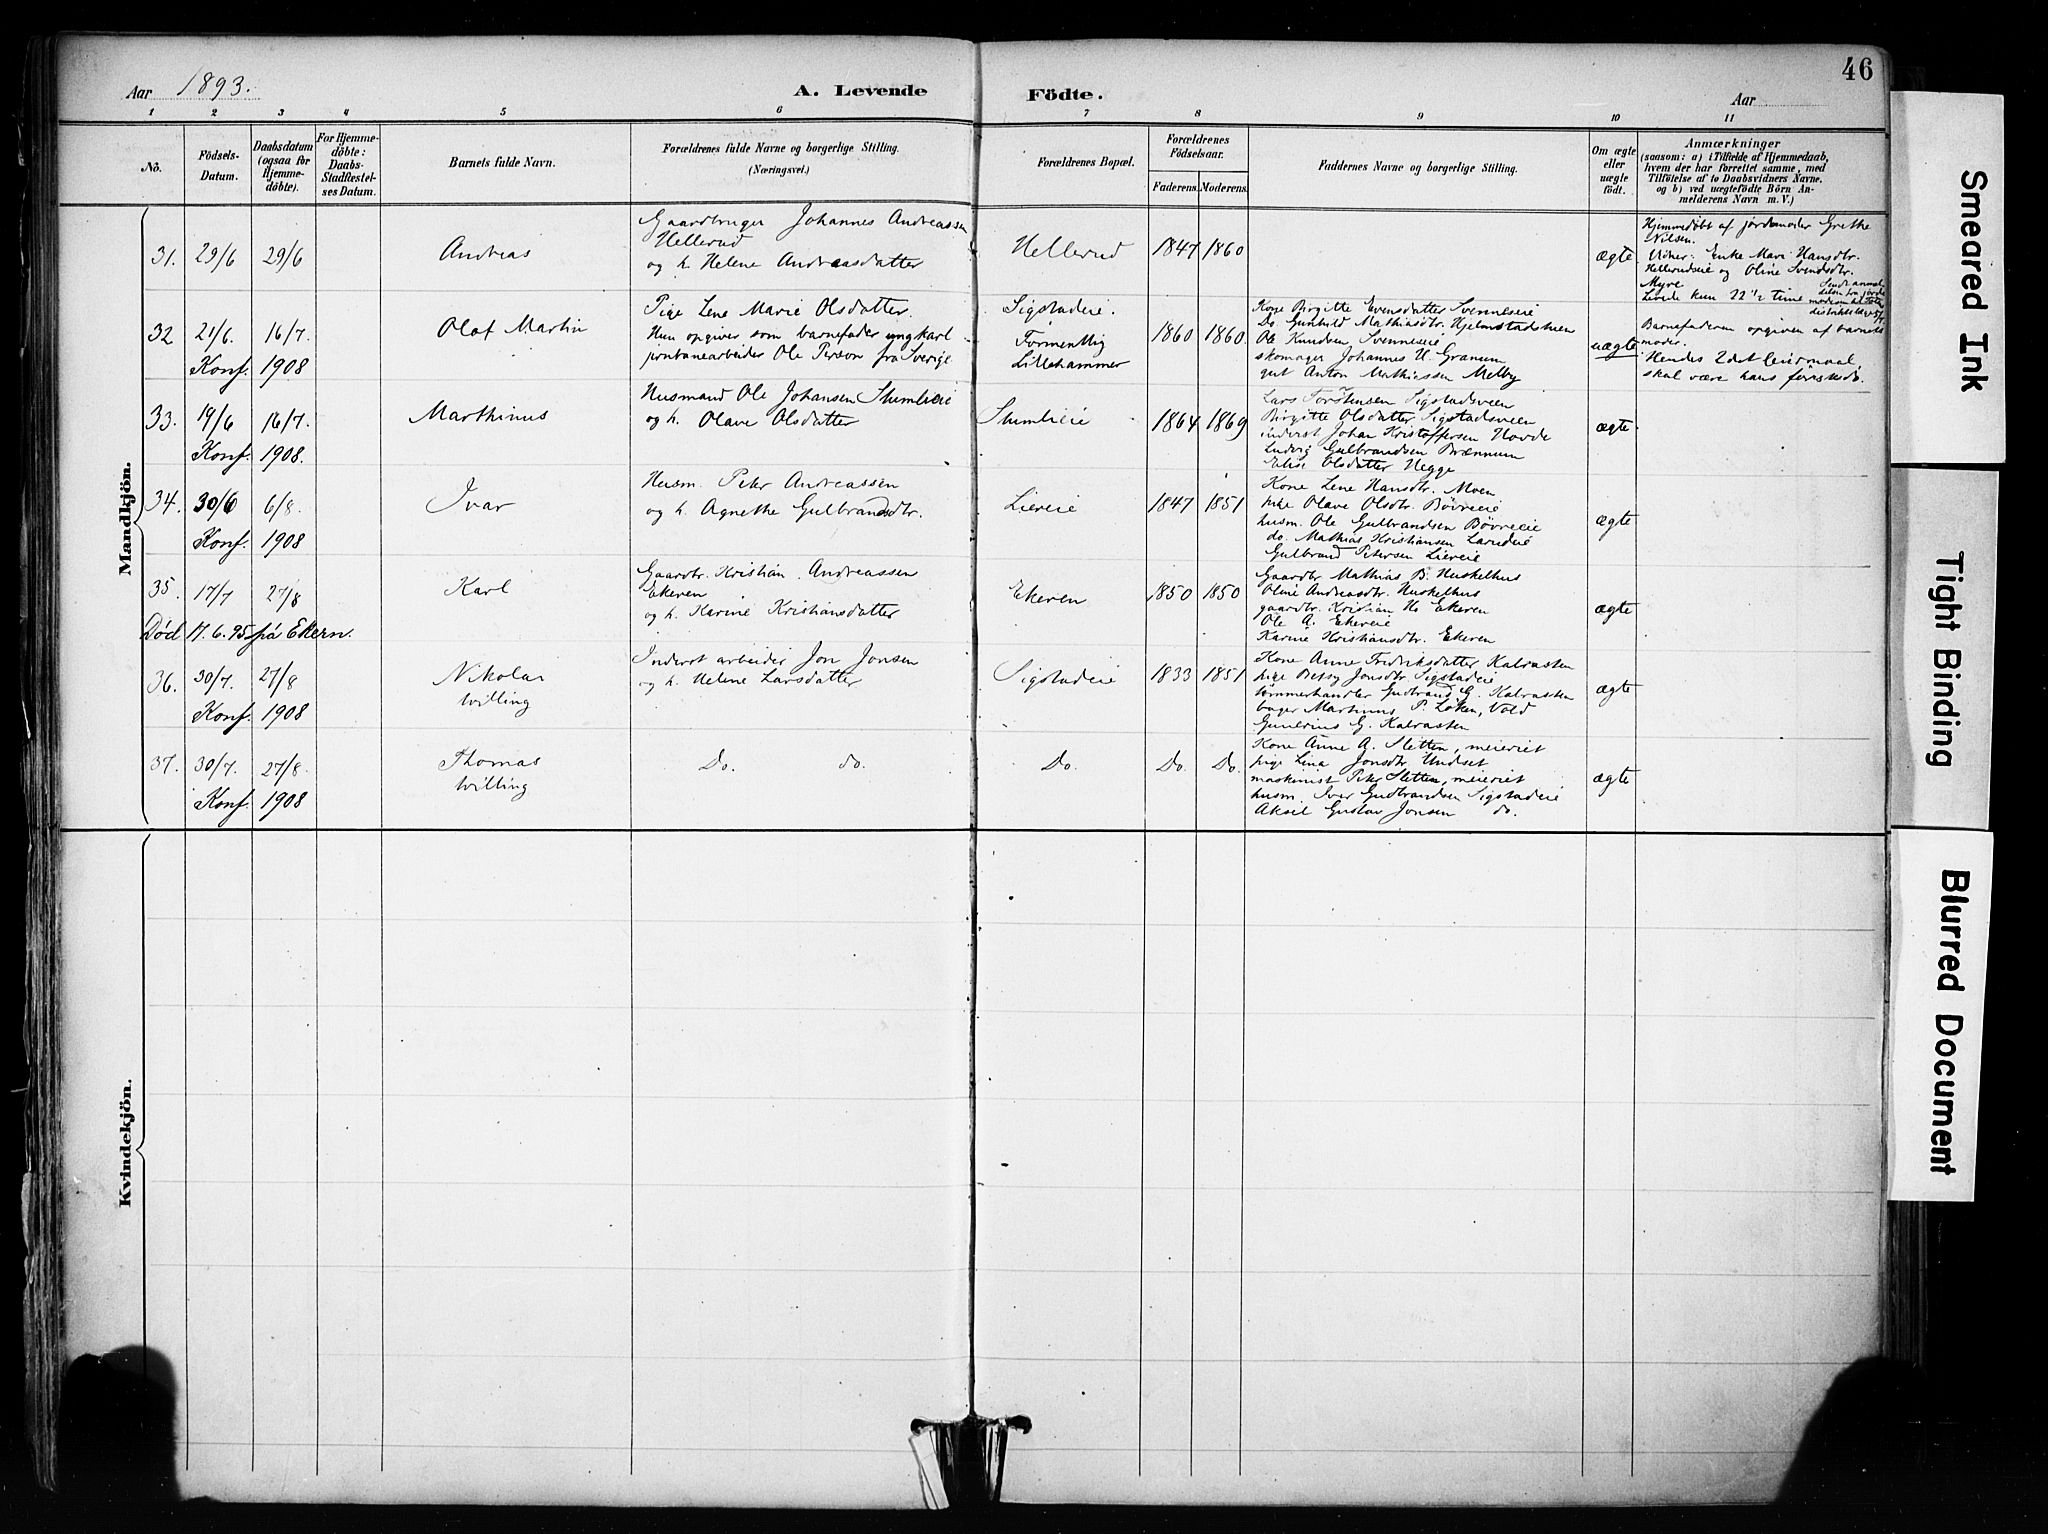 46
Aar 1893.
A. Levende Födte.
Aar
1 2 3 4 5 6 7 8 9 10 11
No.
Födsels-Datum.
Daabsdatum (ogsaa for Hjemme-döbte).
For Hjemme-döbte: Daabs-Stadfæstel-ses Datum.
Barnets fulde Navn.
Forældrenes fulde Navne og borgerlige Stilling.
(Næringsvei.)
Forældrenes Bopæl.
Forældrenes Födselsaar.
Faderens. Moderens.
Faddernes Navne og borgerlige Stilling.
Om ægte eller uægte födt.
Anmærkninger
(saasom: a) i Tilfælde af Hjemmedaab,
hvem der har forrettet samme, med
Tilföielse af to Daabsvidners Navne,
og b) ved uægtefödte Börn An-
melderens Navn m. V.)
Mandkjön.
31. 29/6 29/6 Andreas
Gaardbruger Johannes Andreassen
Hellerud
og h. Helene Andreasdatter
Hellerud 1847 1860 ægte
Hjemmedøbt af jordemoder Grethe
Nilsen.
Vidner: Enke Mari Hansdtr.
Hellerudseie og Oline Svendsdtr.
Myre
Levede kun 22 1/2 time
32 21/6. 16/7. Olaf Martin
Konf. 1908
Pige Lene Marie Olsdatter.
Hun opgiver som barnefader ungkarl
jernbanearbeider Ole Person fra Sverige
Sigstadeie.
Formentlig
Lillehammer
1860 1860.
Kone Birgitte Evensdatter Svenneseie
Do. Gunhild Mathiasdtr. Hjelmstadshein
Ole Knudsen Svenneseie
skomager Johannes H. Granum
gut Anton Mathiassen Melby
uægte
Barnefaderen opgiven af barnets
moder.
Hendes 2det leiermaal
skal være hans første do.
33. 19/6 16/7. Marthinus
Konf. 1908.
Husmand Ole Johansen Stumlieie
og h. Olave Olsdatter
Stumlieie 1864 1869
Lars Torstensen Sigstadsveen
Birgitte Olsdatter Sigstadsveen
inderst Johan Kristoffersen Hovde
Ludvig Gulbrandsen Brænnum
Elise Olsdatter Hegge
ægte
34. 30/6 6/8. Ivar
Konf. 1908
Husm. Peter Andreassen
og h. Agnethe Gulbrandsdtr.
Liereie 1847 1851
Kone Lene Hansdtr. Moen
pike Olave Olsdtr. Bövreeie
husm. Ole Gulbrandsen Bövreeie
do. Mathias Kristiansen Larudeie
Gulbrand Petersen Liereie
ægte
35. 17/7 27/8 Karl
Død 17.6.95 på Ekern.
Gaardbr. Kristian Andreassen
Ekeren
og h. Karine Kristiansdatter
Ekeren 1850 1850
Gaardbr Mathias B. Huskelhus
Oline Andreasdtr. Huskelhus
gaardbr. Kristian Hs. Ekeren
Ole A. Ekereie
Karine Kristiansdtr. Ekeren
ægte
36. 30/7. 27/8 Nikolai
tvilling
Konf. 1908
Inderst arbeider Jon Jonsen
og h. Helene Larsdatter
Sigstadeie 1833 1851
Kone Anne Fredriksdatter Kalrasten
pige Betsy Jonsdtr. Sigstadeie
tømmerhandler Gudbrand G. Kalrasten
bager Martinus P. Løken, Vold
Gunerius G. Kalrasten
ægte
37. 30/7. 27/8. Thomas
tvilling
Konf. 1908
Do. do. Do. Do. Do.
Kone Anne A. Sletten, meieriet
pige Lina Jonsdtr Undset
maskinist Peter Sletten, meieriet
husm. Iver Gudbrandsen Sigstadeie
Aksel Gustav Jonsen do.
ægte
Kvindekjön.
Smeared Ink
Tight Binding
Blurred Document